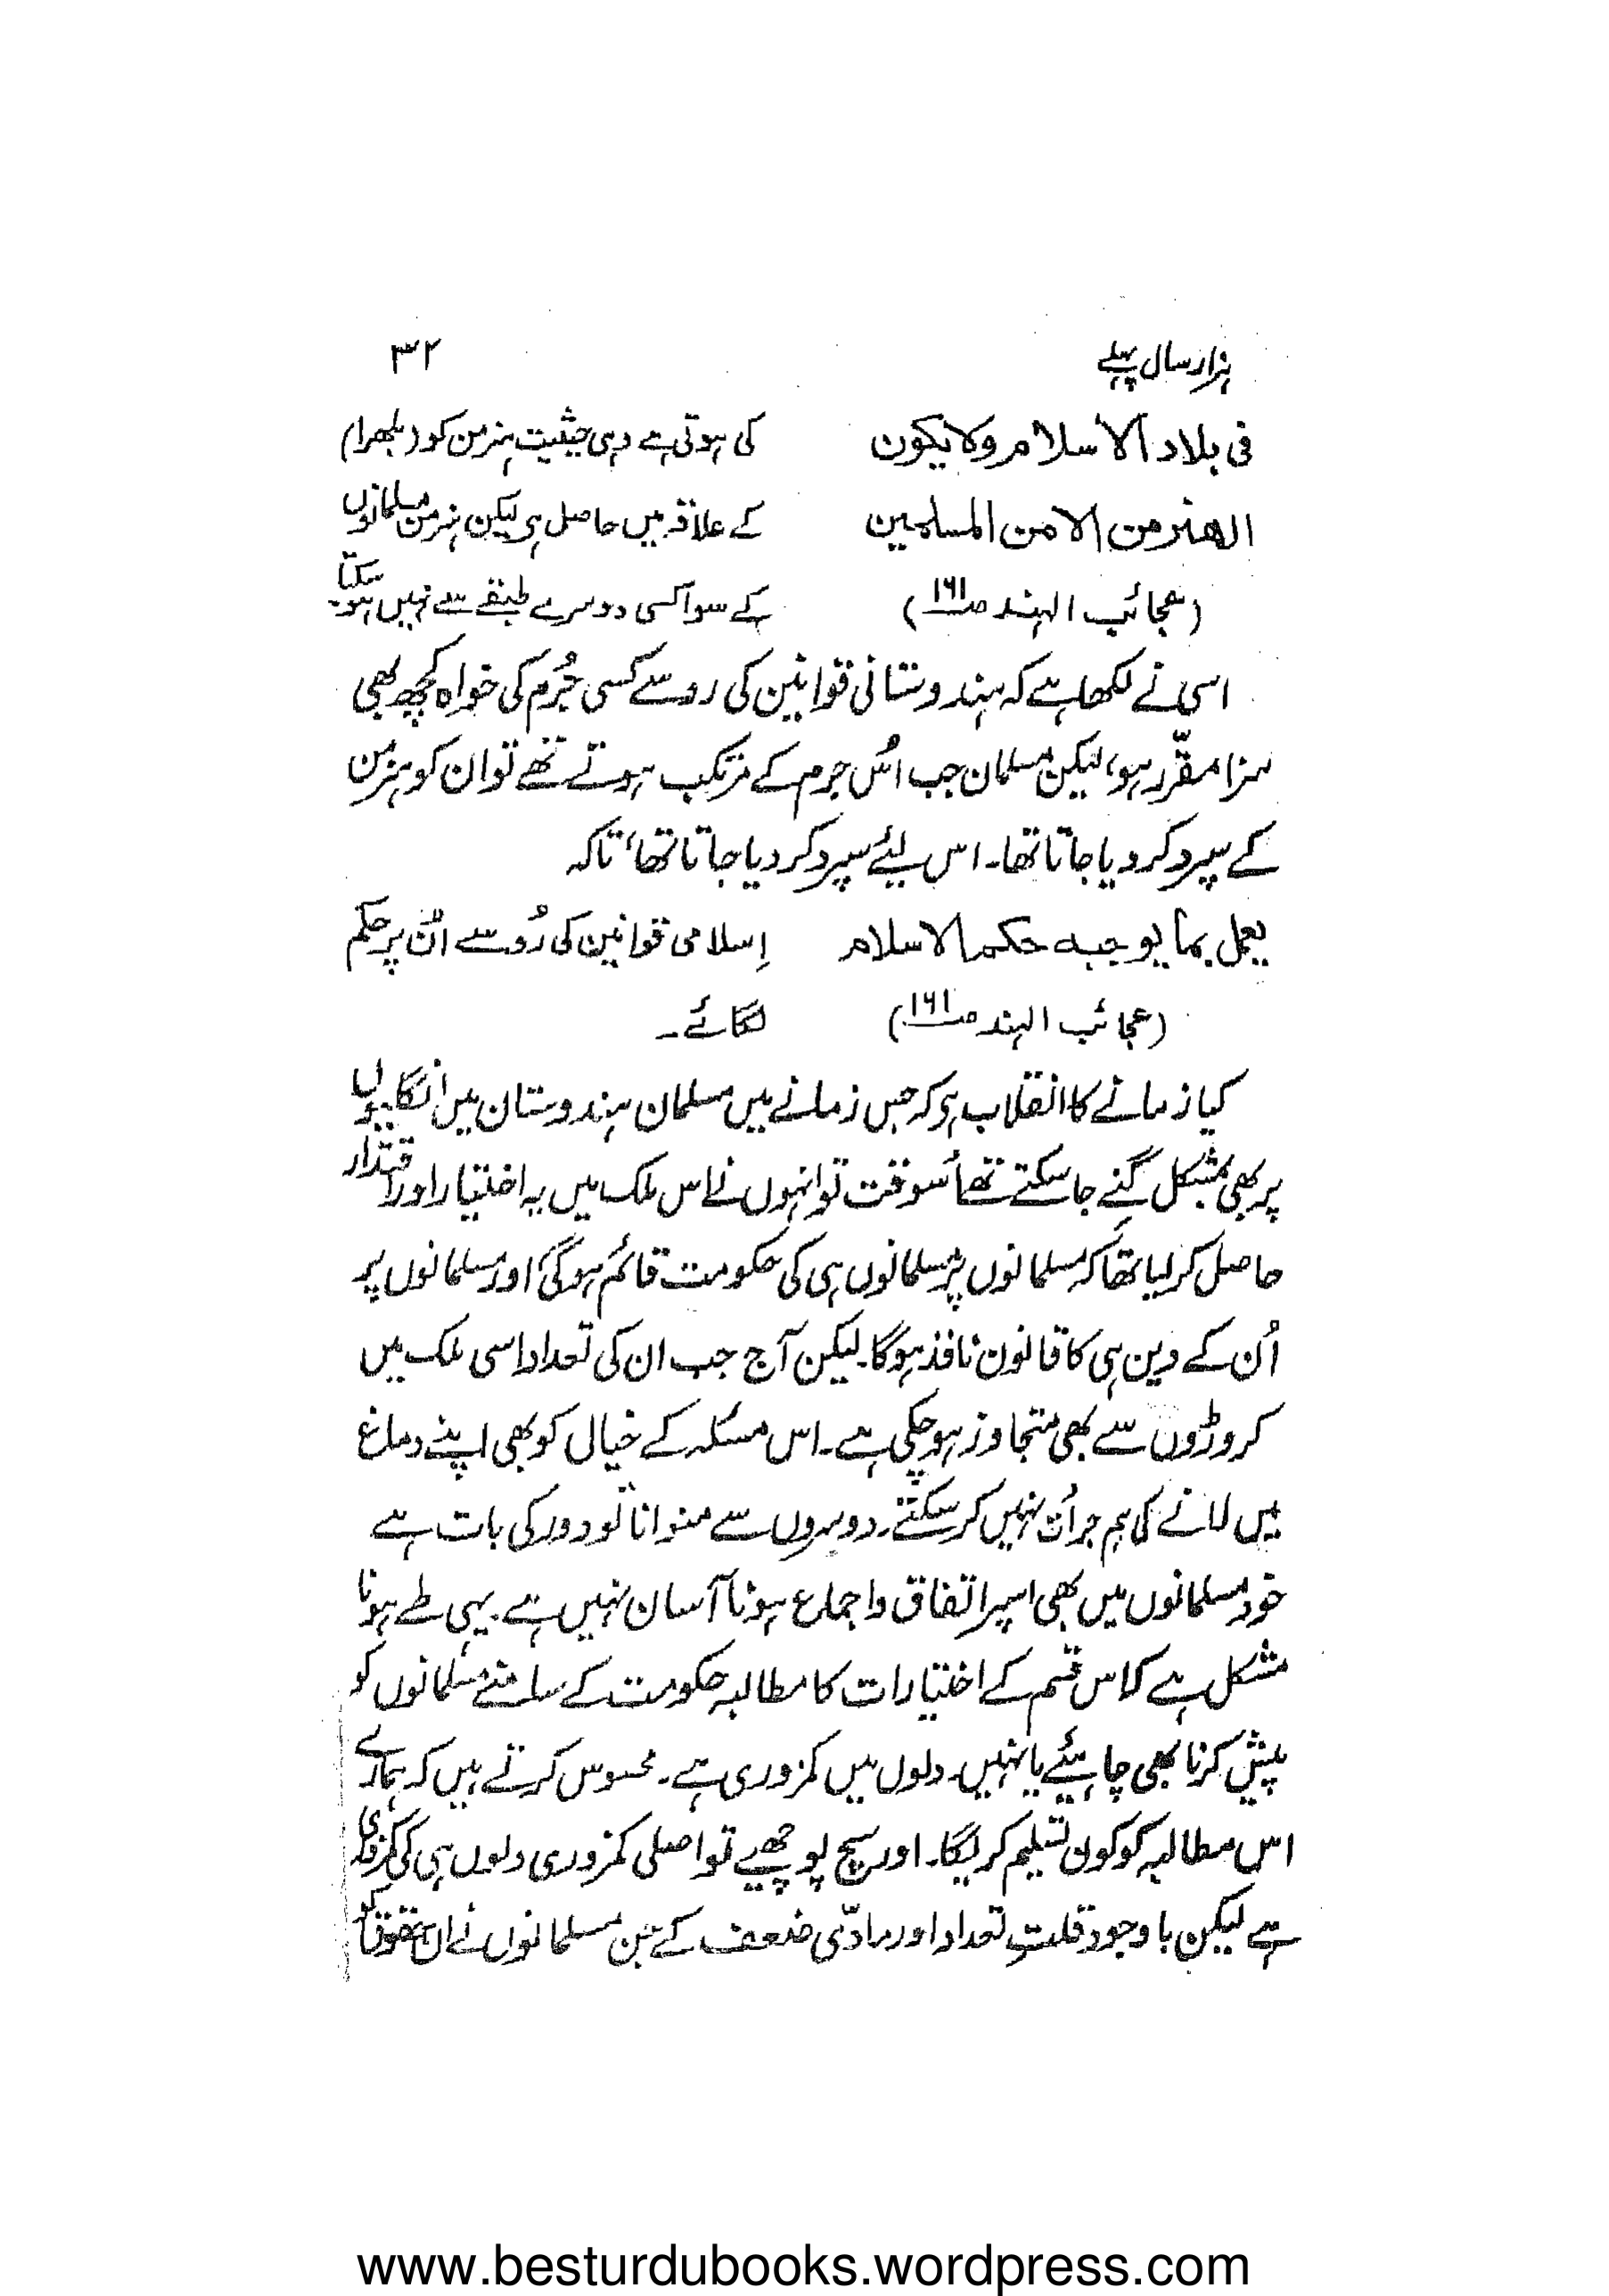 ہزار سال پہلے ۳۲
فی بلاد الاسلام ولا یکون کی ہوتی ہے وہی حیثیت ہنرمن کو (بلہرا)
الھنرمن الا من المسلمین کے علاقہ میں حاصل ہی لیکن ہنرمن مسلمانوں
(عجائب الہند ص۱۶۱) کے سوا کسی دوسرے طبقے سے نہیں ہو سکتا۔
اسی نے لکھا ہے کہ ہندوستانی قوانین کی رو سے کسی جُرم کی خواہ کچھ بھی
سزا مقرّر ہو، لیکن مسلمان جب اُس جرم کے مرتکب ہوتے تھے تو ان کو ہنرمن
کے سپرد کر دیا جاتا تھا۔ اس لیئے سپرد کر دیا جاتا تھا، تاکہ
یعمل بما یوجبہ حکم الاسلام اِسلامی قوانین کی رُو سے اُن پر حکم
(عجائب الہند ص۱۶۱) لگائے۔
کیا زمانے کا انقلاب ہی کہ جس زمانے میں مسلمان ہندوستان میں انگلیوں
پر بھی بمشکل گنے جا سکتے تھے اُسوقت تو انہوں نے اس ملک میں یہ اختیار اور اقتدار
حاصل کر لیا تھا کہ مسلمانوں پر مسلمانوں ہی کی حکومت قائم ہوگی اور مسلمانوں پر
اُن کے دین ہی کا قانون نافذ ہوگا۔ لیکن آج جب ان کی تعداد اسی ملک میں
کروڑوں سے بھی متجاوز ہو چکی ہے۔ اس مسئلہ کے خیال کو بھی اپنے دماغ
میں لانے کی ہم جرأت نہیں کر سکتے۔ دوسروں سے منوانا تو دور کی بات ہے
خود مسلمانوں میں بھی اسپر اتفاق واجماع ہونا آسان نہیں ہے۔ یہی طے ہونا
مشکل ہے کہ اس قسم کے اختیارات کا مطالبہ حکومت کے سامنے مسلمانوں کو
پیش کرنا بھی چاہیئے یا نہیں۔ دلوں میں کمزوری ہے۔ محسوس کرتے ہیں کہ ہمارے
اس مطالبہ کو کون تسلیم کریگا۔ اور سچ پوچھیے تو اصلی کمزوری دلوں ہی کی کمزوری
ہے لیکن باوجود قلتِ تعداد اور مادّی ضعف کے جن مسلمانوں نے ان حقوق کو
www.besturdubooks.wordpress.com